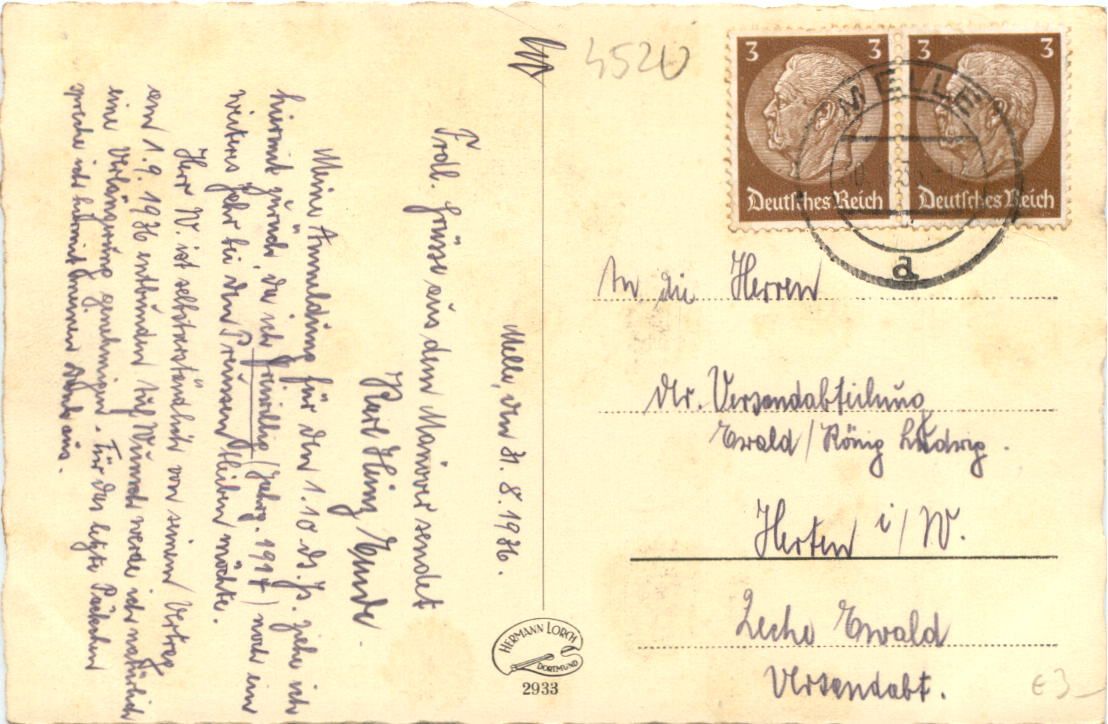 Melle, den 31.8.1936.
Frdl. Grüsse aus dem Manöver sendet
Karl Heinz
Meine Anmeldung für den 1.10 ds. Js. ziehe ich
hiermit zurück, da ich freiwillig (Jahrg. 1917) noch ein
weiteres Jahr bei den Preussen bleiben möchte.
Herr W. ist selbstverständlich von seinem Vertrag
am 1.9.1936 entbunden. Auf Wunsch werde ich natürlich
eine Verlängerung genehmigen. Für das letzte Päckchen
spreche ich hiermit meinen Dank aus.
4520
3 3
3 3
Deutsches Reich
Deutsches Reich
MELLE
a
An die Herren
der. Versandabteilung
Ewald/König Ludwig.
Herten i/W.
Zeche Ewald
Versandabt.
HERMANN LORCH
DORTMUND
2933
€3-